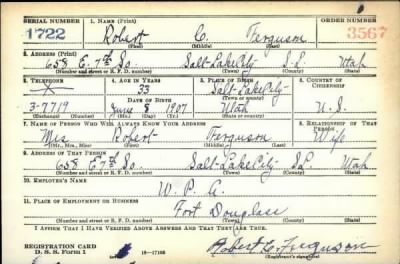 SERIAL NUMBER 1. NAME (Print) ORDER NUMBER
1722 Robert C. Ferguson 3567
(First) (Middle) (Last)
2. ADDRESS (Print)
658 E. 7th So. Salt Lake City S.L. Utah
(Number and street or R. F. D. number) (Town) (County) (State)
3. TELEPHONE 4. AGE IN YEARS 5. PLACE OF BIRTH 6. COUNTRY OF CITIZENSHIP
X 33 Salt Lake City
DATE OF BIRTH
3-7719 June 8 1907 Utah U.S.
(Exchange) (Number) (Mo.) (Day) (Yr.) (State or country)
7. NAME OF PERSON WHO WILL ALWAYS KNOW YOUR ADDRESS 8. RELATIONSHIP OF THAT PERSON
Mrs Robert Ferguson Wife
(Mr., Mrs., Miss) (First) (Middle) (Last)
9. ADDRESS OF THAT PERSON
658 E 7th So. Salt Lake City S.L. Utah
(Number and street or R. F. D. number) (Town) (County) (State)
10. EMPLOYER'S NAME
W. P. A.
11. PLACE OF EMPLOYMENT OR BUSINESS
Fort Douglass
(Number and street or R. F. D. number) (Town) (County) (State)
I AFFIRM THAT I HAVE VERIFIED ABOVE ANSWERS AND THAT THEY ARE TRUE.
REGISTRATION CARD
D. S. S. Form 1 16-17105 Robert C. Ferguson
(Registrant's signature)